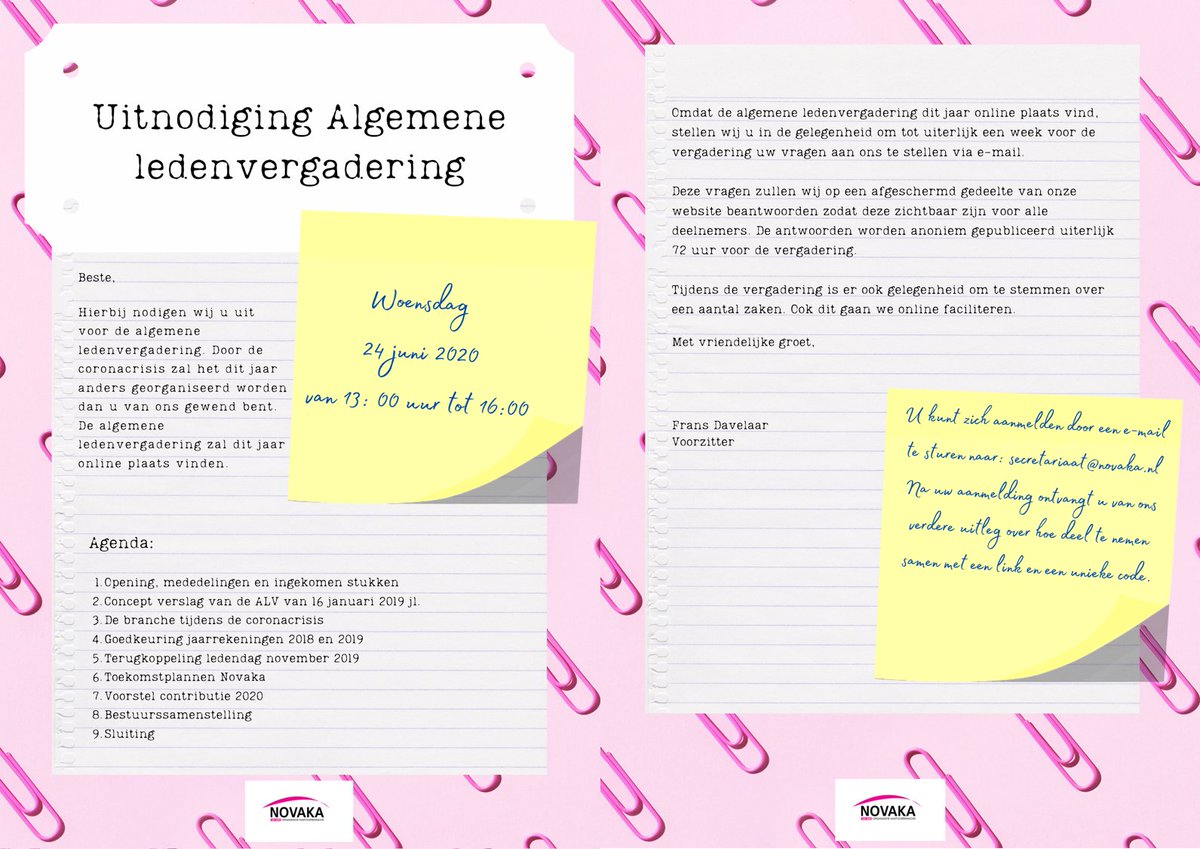 Uitnodiging Algemene
ledenvergadering
Woensdag
24 juni 2020
van 13: 00 uur tot 16:00
Beste,
Hierbij nodigen wij u uit
voor de algemene
ledenvergadering. Door de
coronacrisis zal het dit jaar
anders georganiseerd worden
dan u van ons gewend bent.
De algemene
ledenvergadering zal dit jaar
online plaats vinden.
Agenda:
1. Opening, mededelingen en ingekomen stukken
2. Concept verslag van de ALV van 16 januari 2019 jl.
3. De branche tijdens de coronacrisis
4. Goedkeuring jaarrekeningen 2018 en 2019
5. Terugkoppeling ledendag november 2019
6. Toekomstplannen Novaka
7. Voorstel contributie 2020
8. Bestuurssamenstelling
9. Sluiting
NOVAKA
Omdat de algemene ledenvergadering dit jaar online plaats vind,
stellen wij u in de gelegenheid om tot uiterlijk een week voor de
vergadering uw vragen aan ons te stellen via e-mail.
Deze vragen zullen wij op een afgeschermd gedeelte van onze
website beantwoorden zodat deze zichtbaar zijn voor alle
deelnemers. De antwoorden worden anoniem gepubliceerd uiterlijk
72 uur voor de vergadering.
Tijdens de vergadering is er ook gelegenheid om te stemmen over
een aantal zaken. Ook dit gaan we online faciliteren.
Met vriendelijke groet,
Frans Davelaar
Voorzitter
U kunt zich aanmelden door een e-mail
te sturen naar: secretariaat@novaka.nl
Na uw aanmelding ontvangt u van ons
verdere uitleg over hoe deel te nemen
samen met een link en een unieke code.
NOVAKA